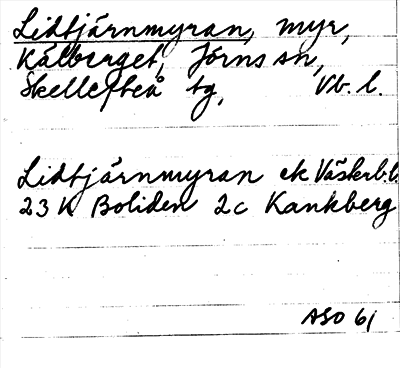 Lidtjärnmyran, myr,
Kålberget, Jörns sn,
Skellefteå tg, Vb. l.
Lidtjärnmyran ek Västerb.l.
23 K Boliden 2c Kankberg
ASO 61